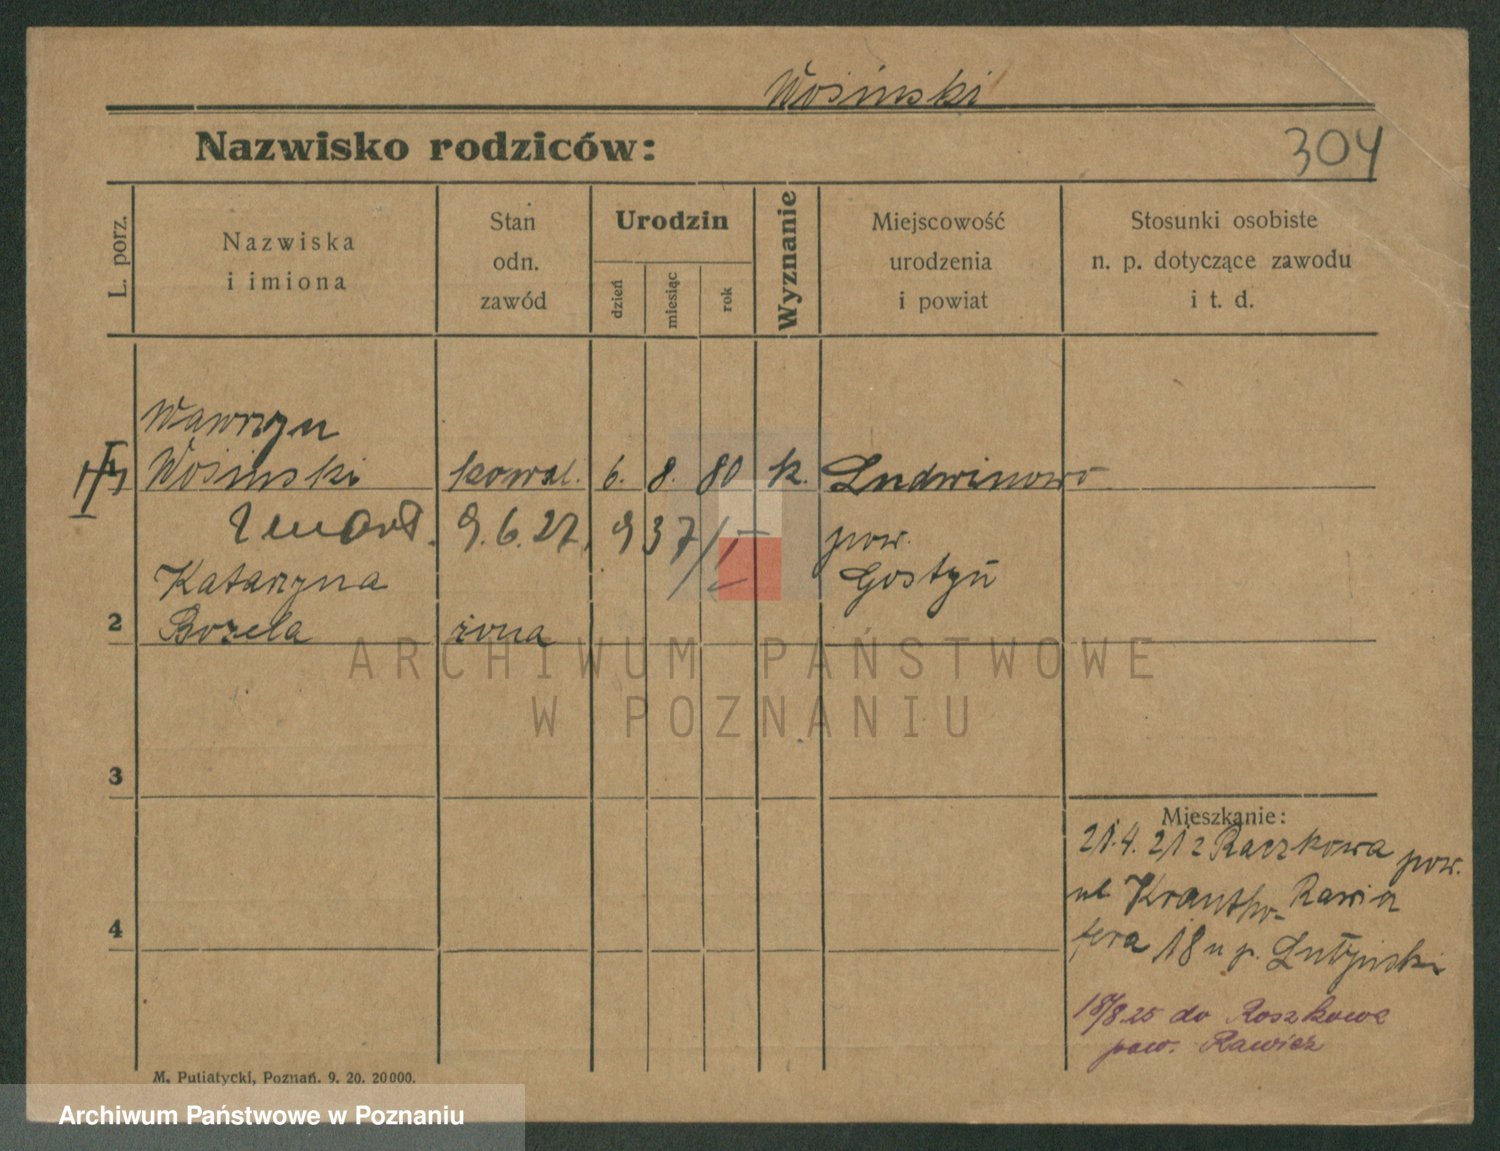 Wosiński
Nazwisko rodziców:
304
L. porz.
Nazwiska
i imiona
Stan
odn.
zawód
Urodzin
dzień
miesiąc
rok
Wyznanie
Miejscowość
urodzenia
i powiat
Stosunki osobiste
n. p. dotyczące zawodu
i t. d.
Wawrzyn
Wosiński kowal. 6. 8. 80 k. Ludwinowo
Zmarł. 9.6.27, 937/I pow.
Gostyń
Katarzyna
2 Bozela żona
3
4
Mieszkanie:
21.4.21 z Raczkowa pow.
ul Krautho- Rawia
fera 18 u p.
18/8.25 do Roszkowa
pow. Rawicz
M. Putiatycki, Poznań. 9. 20. 20000.
ARCHIWUM PAŃSTWOWE
W POZNANIU
Archiwum Państwowe w Poznaniu